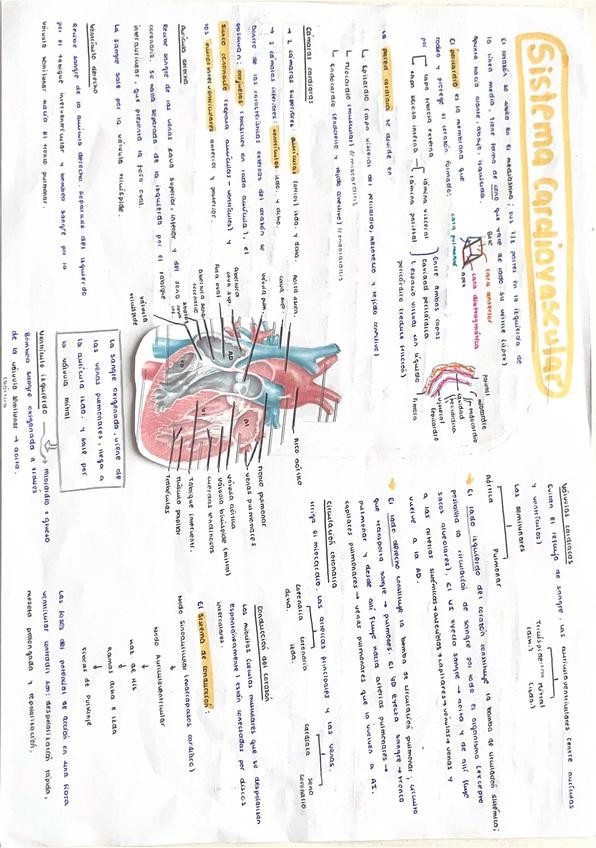 Sistema Cardiovascular
El corazón se ubica en el mediastino; sus 2/3 partes en la izquierda de
la línea media. Tiene forma de cono que yace de lado. Su vértice (ápex)
apunta hacia
abajo, izquierda.
Base
cara anterior
Apex
cara diafragmática
cara pulmonar
El pericardio es la membrana que
rodea y protege el corazón formada
por
capa fibrosa externa
capa serosa interna
lámina visceral
lámina parietal
Entre ambas capas
cavidad pericárdica
↳ espacio virtual con líquido
pericárdico (reduce fricción)
parietal
cavidad
pericárdica
visceral
(epicardio)
miocardio
endocardio
fibrosa
La pared cardíaca se divide en
↳ Epicardio (capa visceral del pericardio, mesotelio y tejido conectivo)
↳ Miocardio (muscular)
↳ Endocardio (endotelio y tejido conectivo)
Cámaras cardíacas
→ 2 cámaras superiores: aurículas (atrios) izda. y dcha.
→ 2 cámaras inferiores: ventrículos izdo. y dcho.
Dentro de las características externas del corazón se
observan: orejuelas (bolsitas en cada aurícula), el
surco coronario (separa aurículas - ventrículos) y
los surcos interventriculares anterior y posterior.
Aurícula derecha
Recibe sangre de las venas cava superior, inferior y del seno
coronario. Se halla separada de la izquierda por el tabique
interauricular, que presenta la fosa oval.
La sangre sale por la válvula tricúspide.
Ventrículo derecho
Recibe sangre de la aurícula derecha. Separado del izquierdo
por el tabique interventricular y bombea sangre por la
válvula semilunar hacia el tronco pulmonar.
cava sup.
válvula pulm.
cava sup.
fosa oval
válvula
tricúspide
AD
AI
VI
VD
Arco aórtico
tronco pulmonar
venas pulmonares
válvula aórtica
válvula bicúspide (mitral)
cuerdas tendinosas
tabique interventr.
músculo papilar
trabéculas
La sangre oxigenada, viene de
las venas pulmonares, llega a
la aurícula izda. y sale por
la válvula mitral
Ventrículo izquierdo
miocardio + grueso
Bombea sangre oxigenada a través
de la válvula semilunar → aorta.
(aórtica)
Válvulas cardíacas
Evitan el reflujo de sangre. Las auriculoventriculares (entre aurículas
y ventrículos)
Tricúspide
(dcha.)
Mitral
(izda.)
Las semilunares
Aórtica
Pulmonar
→ El lado izquierdo del corazón constituye la bomba de circulación sistémica;
posibilita la circulación de sangre por todo el organismo (excepto
sacos alveolares). El VI eyecta sangre → aorta y de ahí fluye
a las arterias sistémicas → arteriolas → capilares → vénulas → venas y
vuelve a la AD.
→ El lado derecho constituye la bomba de circulación pulmonar; circuito
que transporta sangre → pulmones. El VD eyecta sangre → tronco
pulmonar y desde ahí fluye hacia arterias pulmonares →
capilares pulmonares → venas pulmonares que la vuelven a AI.
Circulación coronaria
Irriga el miocardio. Las arterias principales y las venas.
coronaria
dcha.
coronaria
izda.
cardíaca
seno
coronario
Conducción del corazón
Las células musculares que se despolarizan
espontáneamente y están conectadas por discos
intercalares.
El sistema de conducción:
Nodo Sinoauricular (marcapasos cardíaco)
↓
Nodo Auriculoventricular
↓
Haz de His
↓
Ramas dcha e izda
↓
Fibras de Purkinje
Las fases del potencial de acción en una fibra
ventricular contráctil son: despolarización rápida,
meseta prolongada y repolarización.